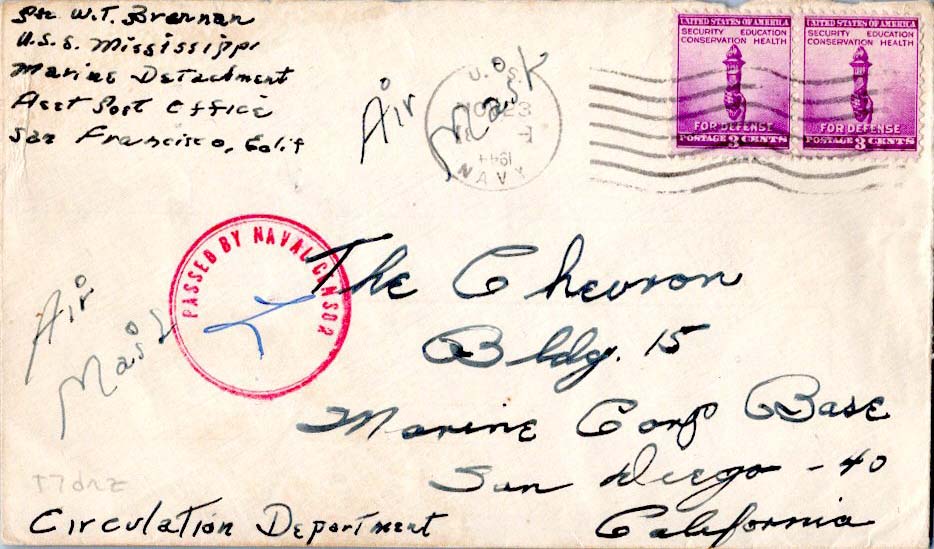 Pfc W.T. Brennan
U.S.S. Mississippi
Marine Detachment
Fleet Post Office
San Francisco, Calif
Air Mail
U.S.
23
1944
NAVY
UNITED STATES OF AMERICA
SECURITY EDUCATION
CONSERVATION HEALTH
FOR DEFENSE
POSTAGE 3 CENTS
UNITED STATES OF AMERICA
SECURITY EDUCATION
CONSERVATION HEALTH
FOR DEFENSE
POSTAGE 3 CENTS
PASSED BY NAVAL CENSOR
Air
Mail
The Chevron
Bldg. 15
Marine Corp Base
San Diego - 40
California
Circulation Department